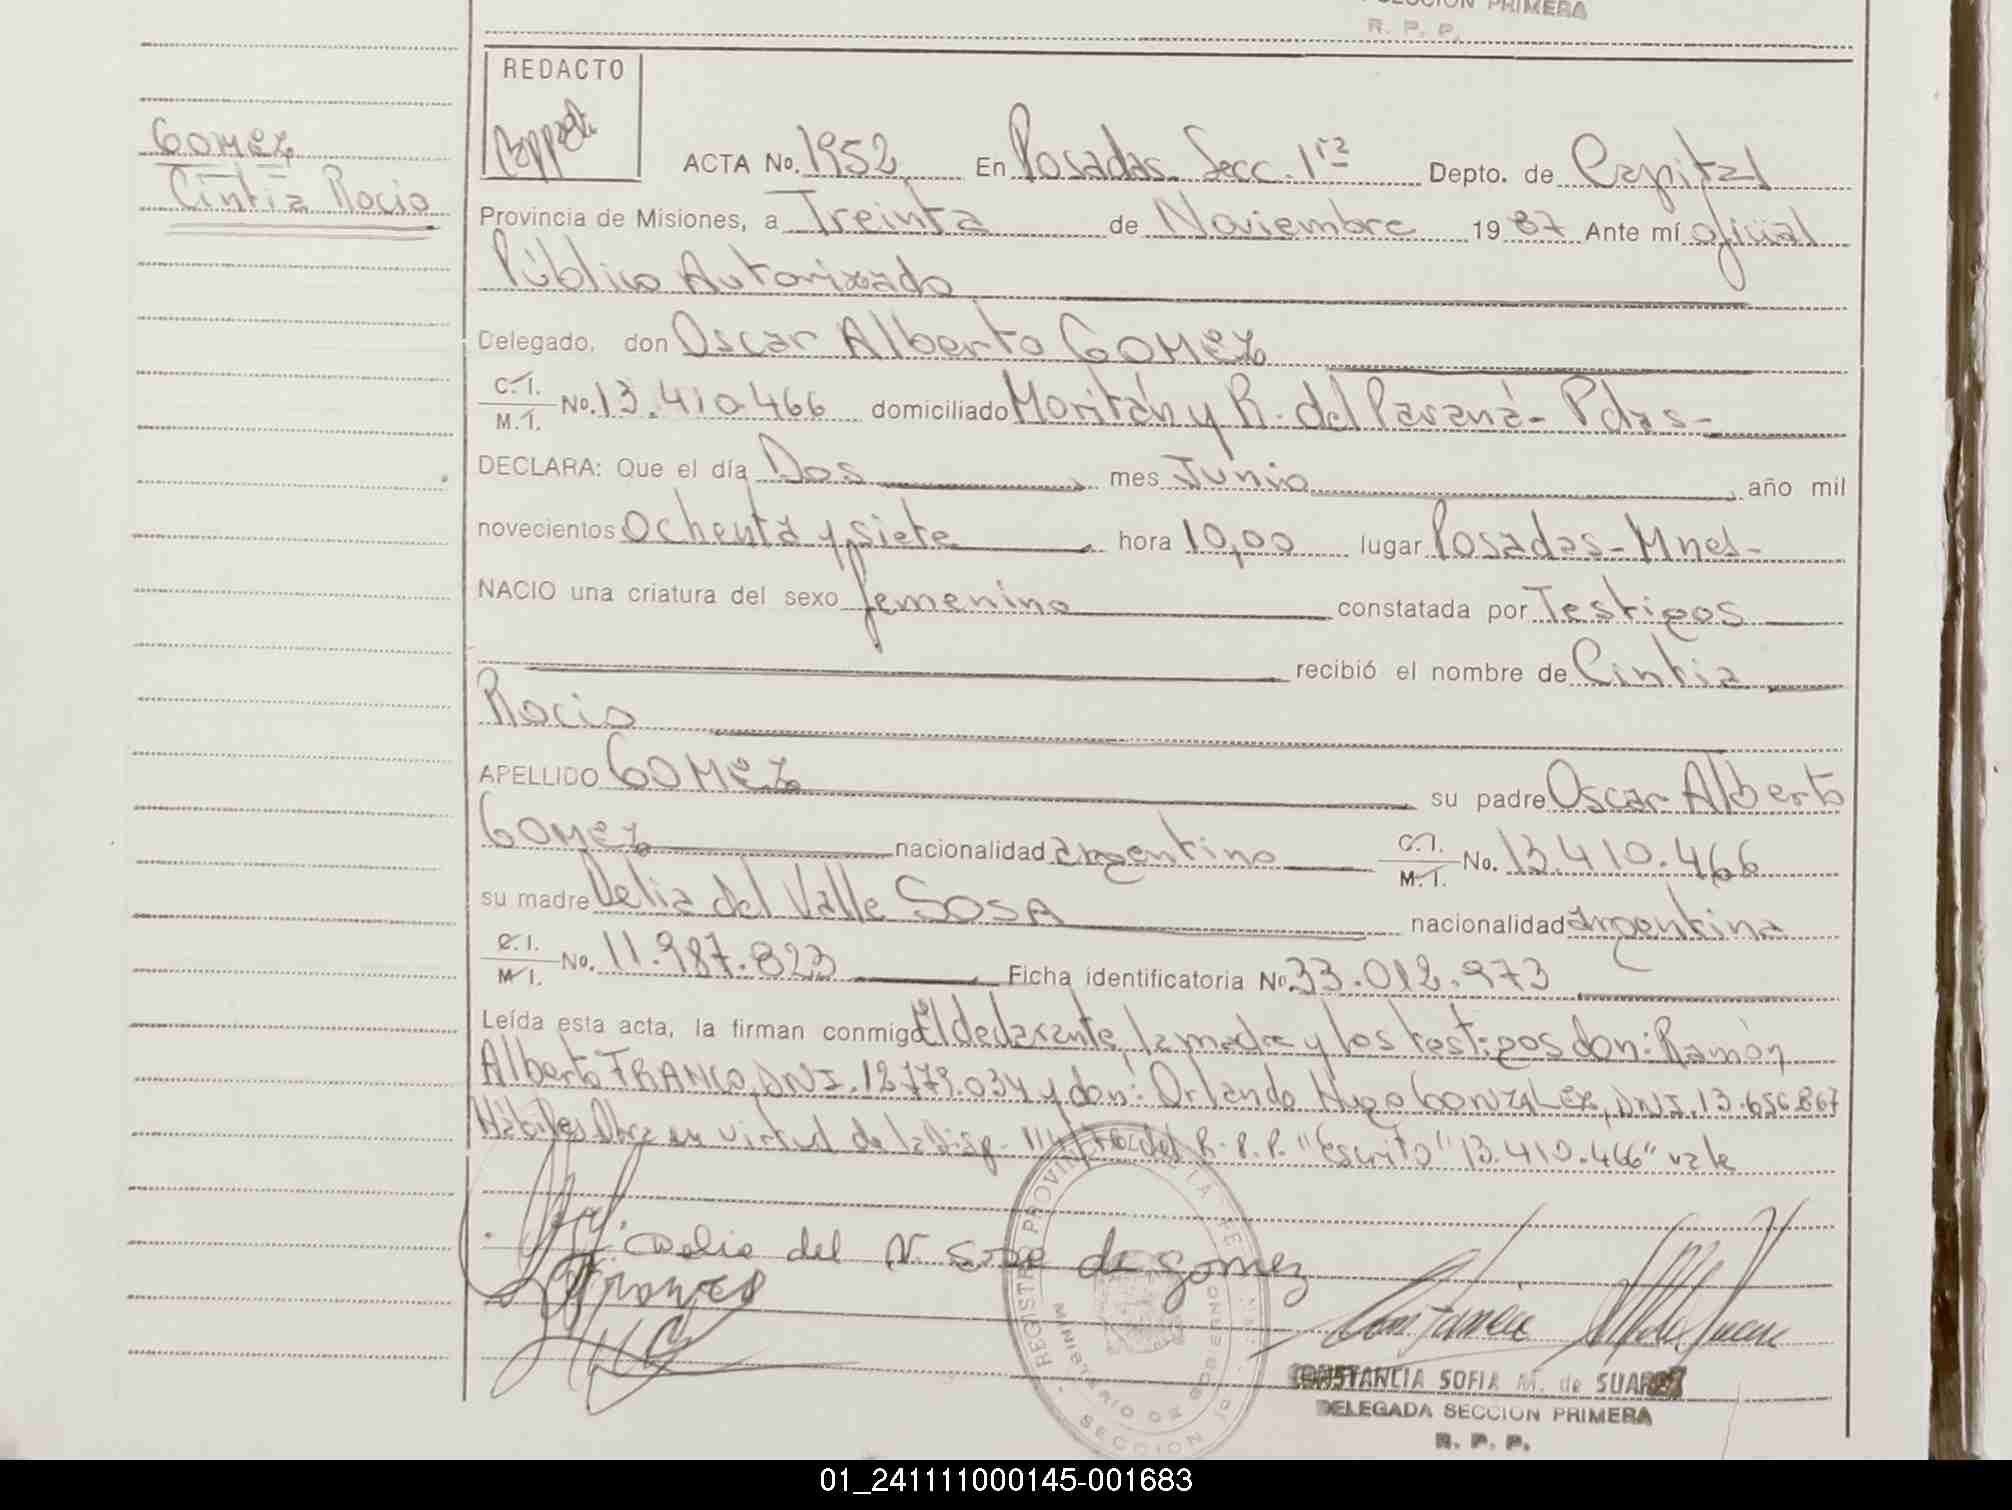 SECCION PRIMERA
R. P. P.
REDACTO
GOMEZ
Cintia Rocio
ACTA No. 1952 En Posadas Secc. 1ra Depto. de Capital
Provincia de Misiones, a Treinta de Noviembre 1987 Ante mí oficial
Público Autorizado
Delegado, don Oscar Alberto GOMEZ
C.I. M.I. No. 13.410.466 domiciliado Moritán y R. del Paraná - Pdas -
DECLARA: Que el día Dos mes Junio año mil
novecientos ochenta y siete hora 10,00 lugar Posadas - Mnes -
NACIO una criatura del sexo femenino constatada por Testigos
recibió el nombre de Cintia
Rocio
APELLIDO GOMEZ su padre Oscar Alberto
GOMEZ nacionalidad argentino C.I. M.I. No. 13.410.466
su madre Delia del Valle SOSA nacionalidad argentina
C.I. M.I. No. 11.987.823 Ficha identificatoria No. 33.012.973
Leída esta acta, la firman conmigo El declarante, la madre y los testigos don: Ramón
Alberto FRANCO, DNI. 12.779.034 y don: Orlando Hugo GONZALEZ, DNI. 13.656.867
Hábiles en virtud de la Disp. del R. P. P. "Escrito" 13.410.466" vale
Delia del V. Sosa de Gomez
Franco
CONSTANCIA SOFIA M. de SUAREZ
DELEGADA SECCION PRIMERA
R. P. P.
01_241111000145-001683